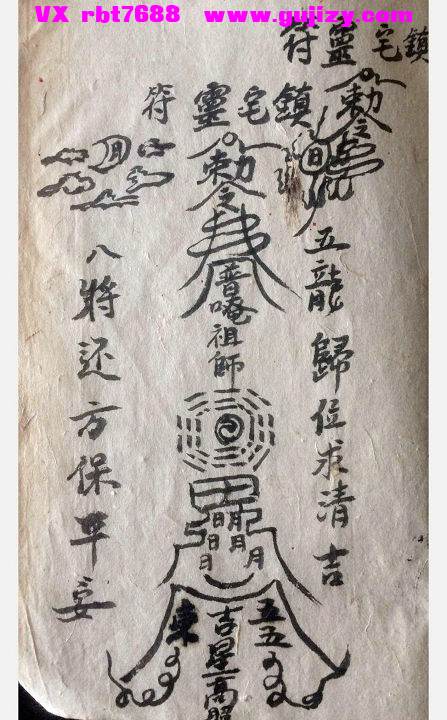 VX rbt7688 www.gujizy.com
鎮宅靈符
勅令
鎮宅靈符
勅令
普唵祖師
五龍歸位求清吉
八將还方保平安
日
日月
日月
日月
吉星高照
五五
東